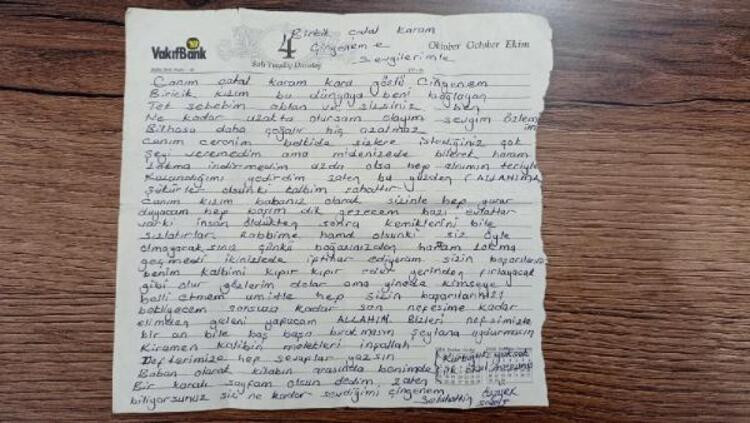 Biricik çatal karam
Çingeneme
Sevgilerimle
VakıfBank
4
Oktober October Ekim
Canım çatal karam kara gözlü Çingenem
Biricik kızım bu dünyaya beni bağlayan
Tek sebebim ablan ve sizsiniz ben
Ne kadar uzakta olursam olayım sevgim özlemim
Bilhasa daha çoğalır hiç azalmaz
Canım ceronim belkide sizlere istediğiniz çok
Şeyi veremedim ama midenizede bilerek haram
Lokma indirmedim azda olsa hep alnımın teriyle
Kazandığımı yedirdim zaten bu yüzden (ALLAHIMA
Şükürler olsunki kalbim rahattır
Canım kızım babanız olarak sizinle hep gurur
duyacam hep başım dik gezecem bazı evlatlar
varki insan öldükten sonra kemiklerini bile
sızlatırlar Rabbime hamd olsunki siz öyle
olmayacaksınız çünkü boğazınızdan haram lokma
geçmedi ikinizlede iftihar ediyoram sizin başarılarınız
benim kalbimi kıpır kıpır eder yerinden fırlayacak
gibi olur gözlerim dolar ama yinede kimseye
belli etmem umitle hep sizin başarılarınızı
bekliyecem sonsuza kadar son nefesime kadar
elimden geleni yapacam ALLAHIM Bizleri nefsimizle
bir an bile baş başa bırakmasın Şeytana uydurmasın
Kiramen katibin melekleri inşallah
Defterimize hep sevaplar yazsın
Baban olarak kitabın arasında benimde
Bir karalı sayfam olsun dedim zaten
biliyorsunuz sizi ne kadar sevdiğimi çingenem
Selahattin